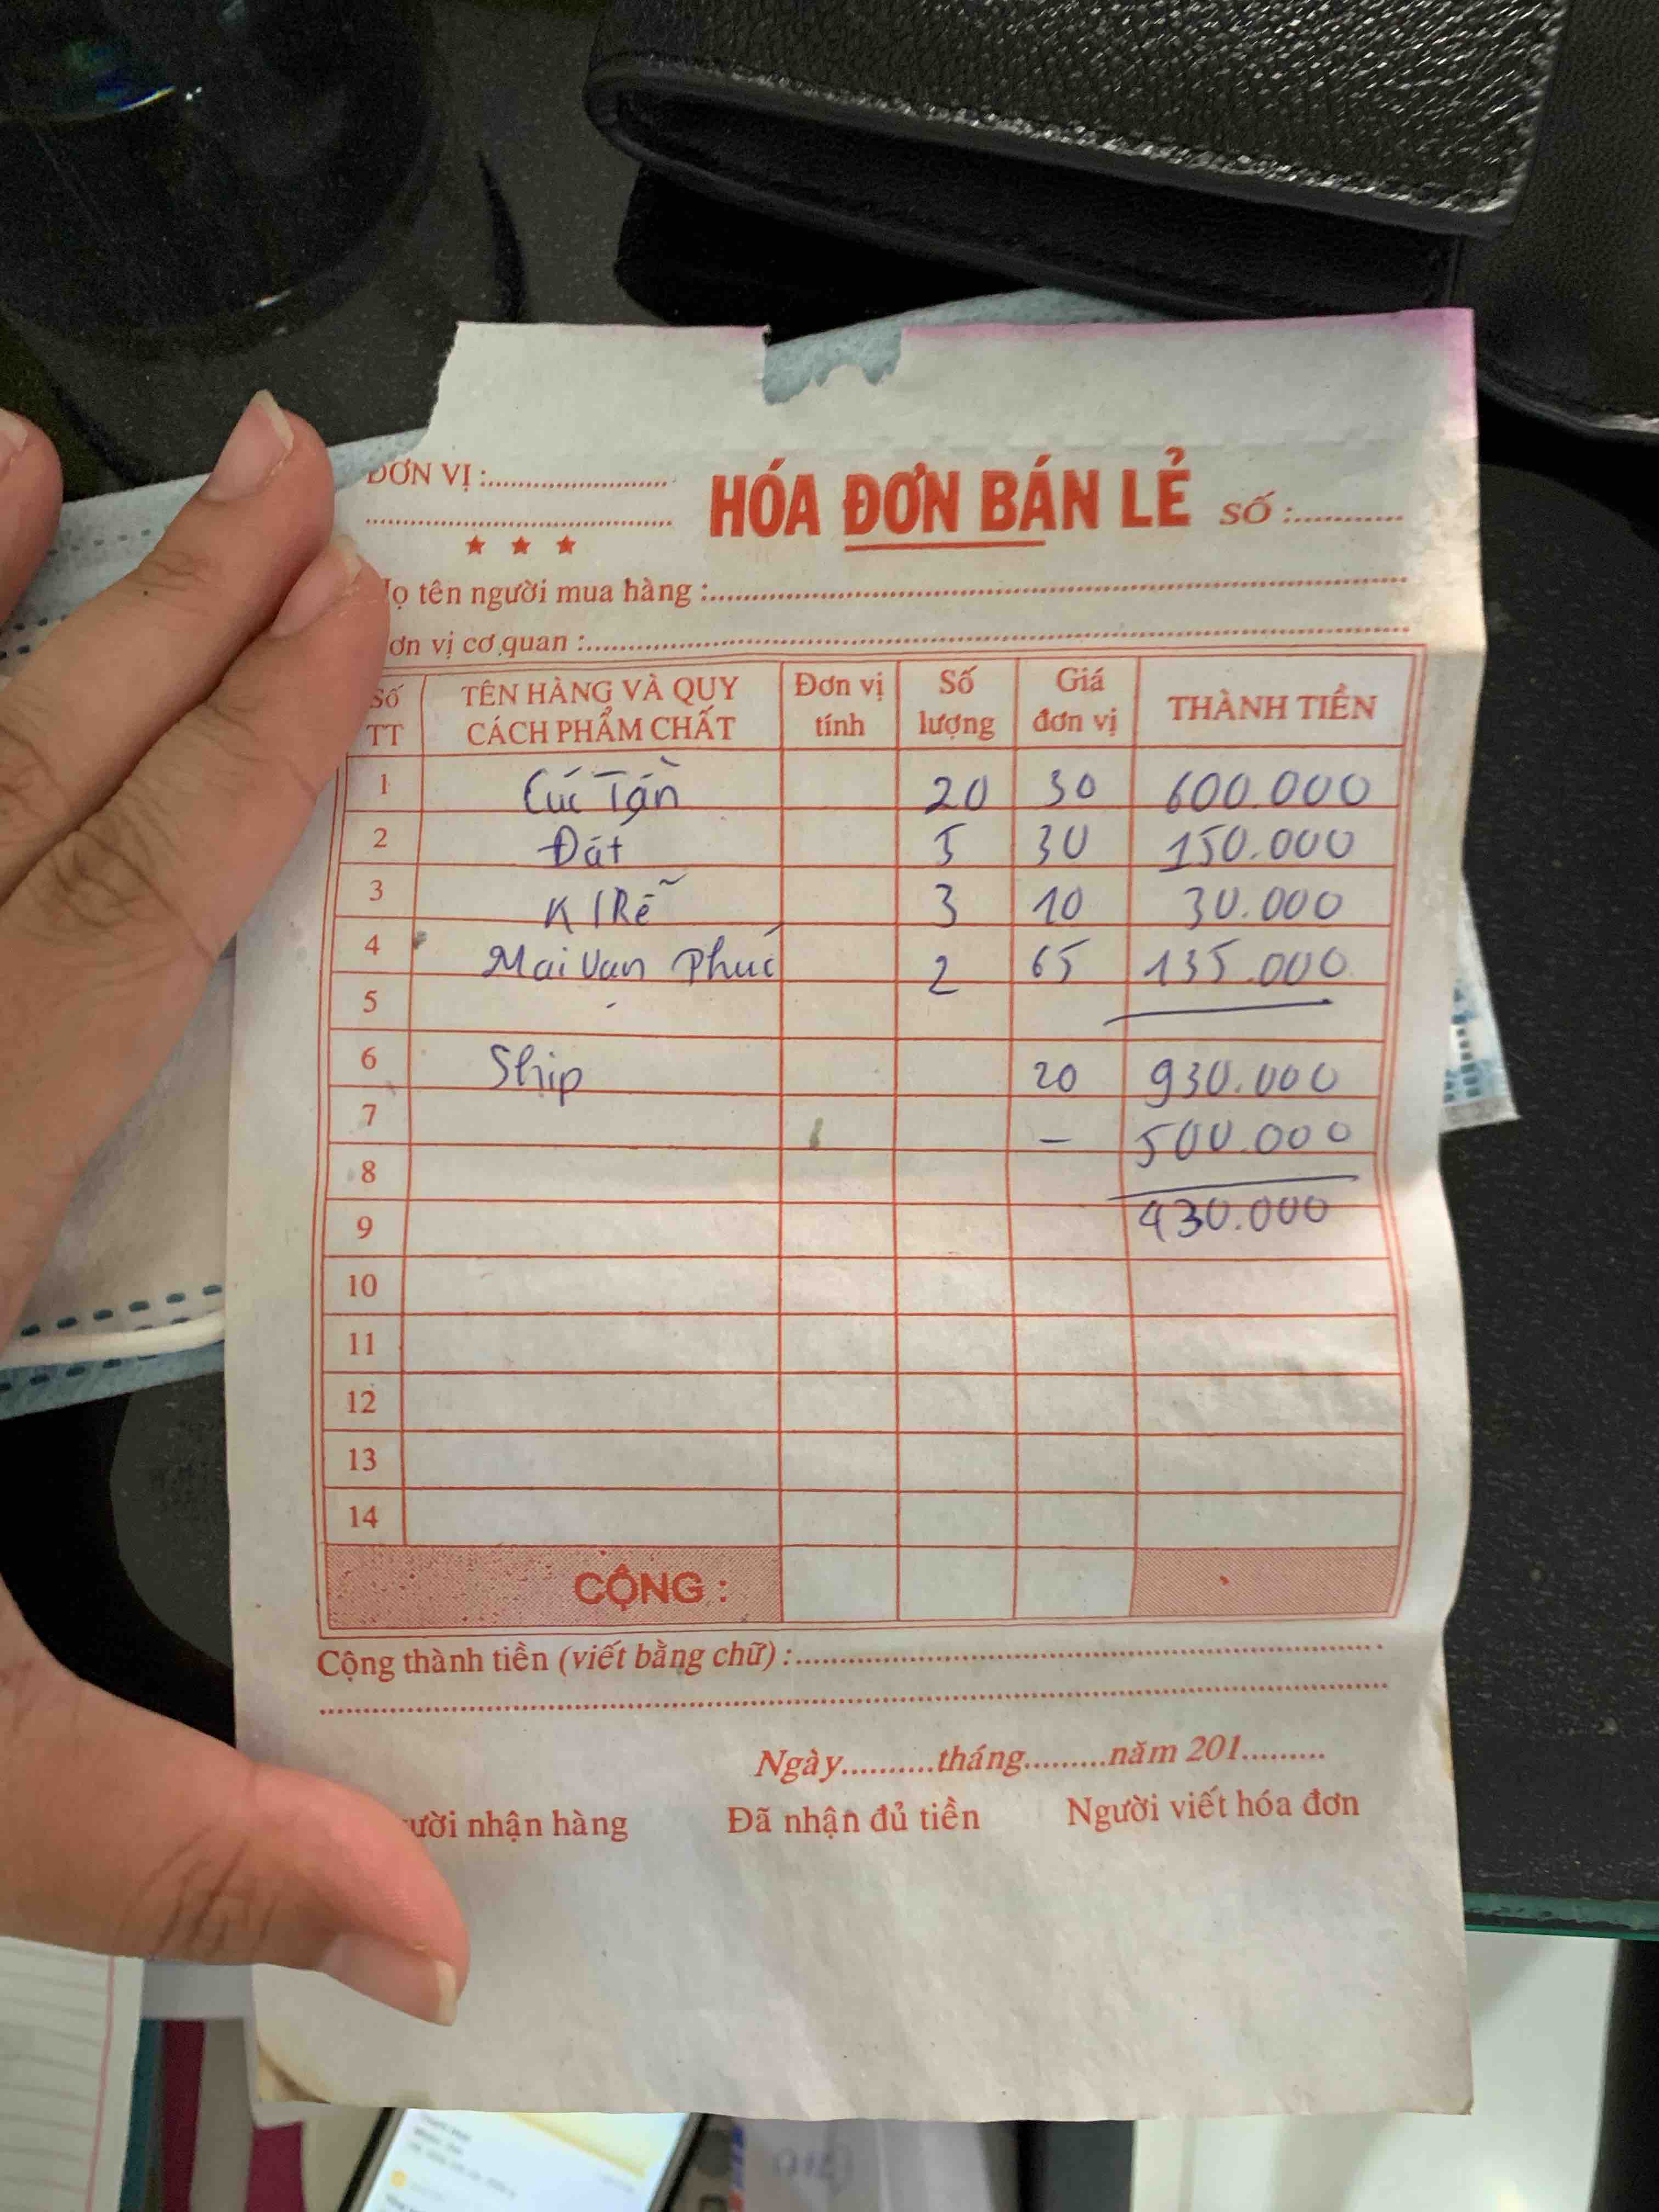 ĐƠN VỊ :
HÓA ĐƠN BÁN LẺ
SỐ :
★ ★ ★
ọ tên người mua hàng :
ơn vị cơ quan :
Số TT TÊN HÀNG VÀ QUY CÁCH PHẨM CHẤT Đơn vị tính Số lượng Giá đơn vị THÀNH TIỀN
1 Cúc Tần 20 30 600.000
2 Đất 5 30 150.000
3 K/Rễ 3 10 30.000
4 Mai Vạn Phúc 2 65 135.000
5
6 Ship 20 930.000
7 - 500.000
8
9 430.000
10
11
12
13
14
CỘNG :
Cộng thành tiền (viết bằng chữ) :
Ngày..........tháng.........năm 201.........
ười nhận hàng Đã nhận đủ tiền Người viết hóa đơn